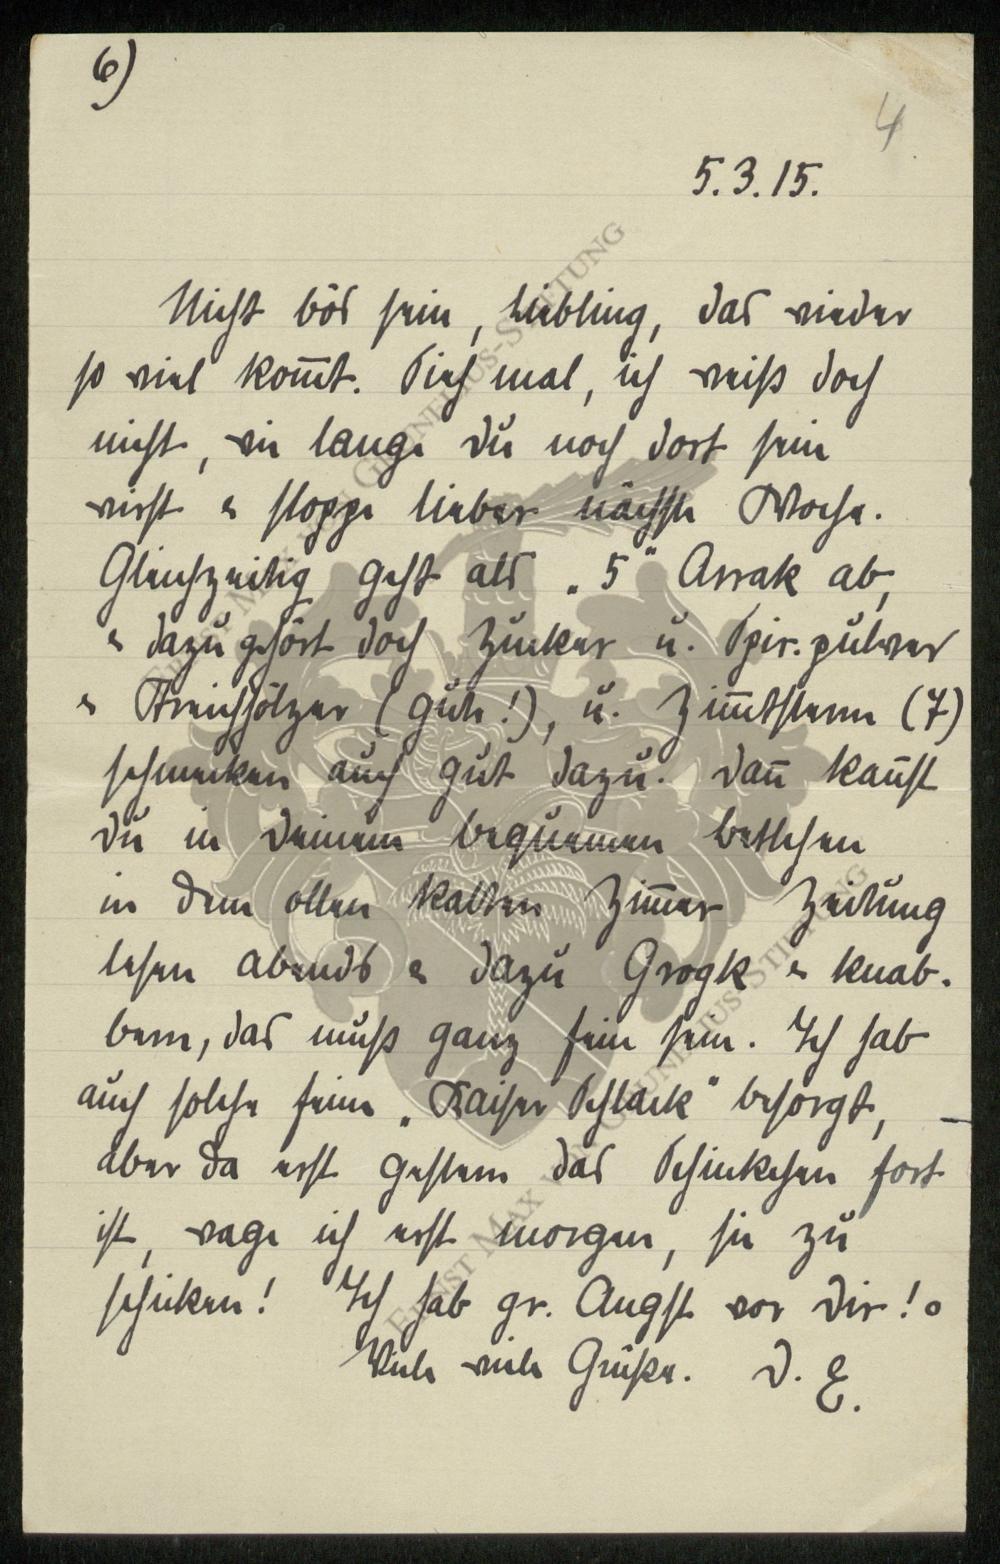 6)
4
5.3.15.
Nicht bös sein, Liebling, das wieder
so viel kom̅t. Sieh mal, ich weiß doch
nicht, wie lange Du noch dort sein
wirst & stoppe lieber nächste Woche.
Gleichzeitig geht als „5" Arrak ab,
& dazu gehört doch Zucker u. Spir.pulver
& Streichhölzer (gute!), u. Zim̅tsterne (7)
schmecken auch gut dazu. Dan̅ kan̅st
Du in Deinem bequemen Bettchen
in dem ollen kalten Zim̅er Zeitung
lesen abends & dazu Grogk & knab-
bern, das muß ganz fein sein. Ich hab
auch solche feine „Kaiser Schlack" besorgt,
aber da erst gestern das Schinkchen fort
ist, wage ich erst morgen, sie zu
schicken! Ich hab gr. Angst vor Dir!
Viele viele Grüße. D. E.
ERNST MAX VON GRUNELIUS-STIFTUNG
ERNST MAX VON GRUNELIUS-STIFTUNG